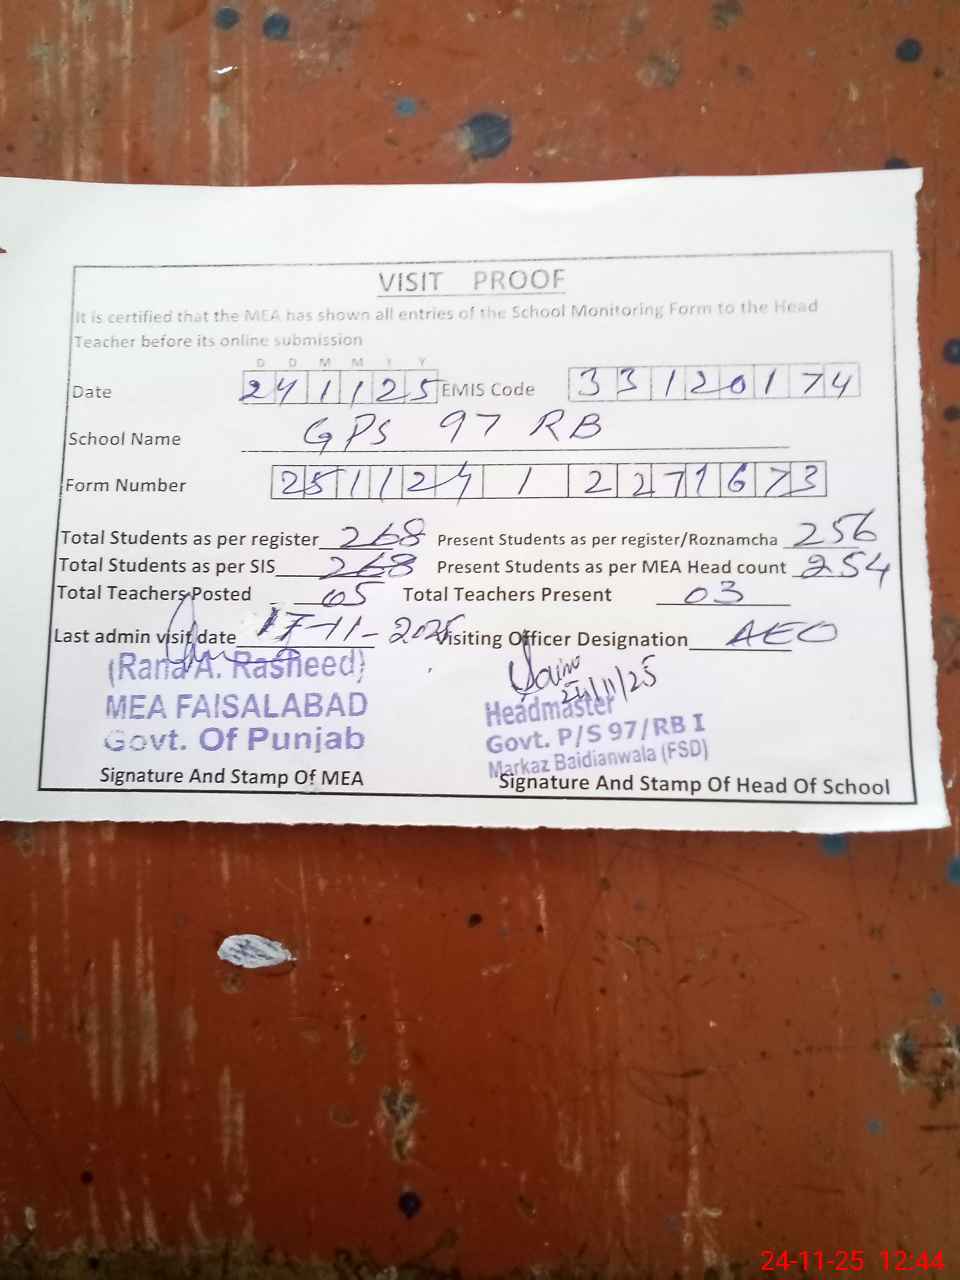 VISIT PROOF
It is certified that the MEA has shown all entries of the School Monitoring Form to the Head
Teacher before its online submission
D D M M Y Y
Date 241125 EMIS Code 33120174
School Name GPS 97 RB
Form Number 251124 1 2271673
Total Students as per register 268 Present Students as per register/Roznamcha 256
Total Students as per SIS 268 Present Students as per MEA Head count 254
Total Teachers Posted 05 Total Teachers Present 03
Last admin visit date 17-11-2025 Visiting Officer Designation AEO
(Rana A. Rasheed)
MEA FAISALABAD
Govt. Of Punjab
Signature And Stamp Of MEA
24/11/25
Headmaster
Govt. P/S 97/RB I
Markaz Baidianwala (FSD)
Signature And Stamp Of Head Of School
24-11-25 12:44